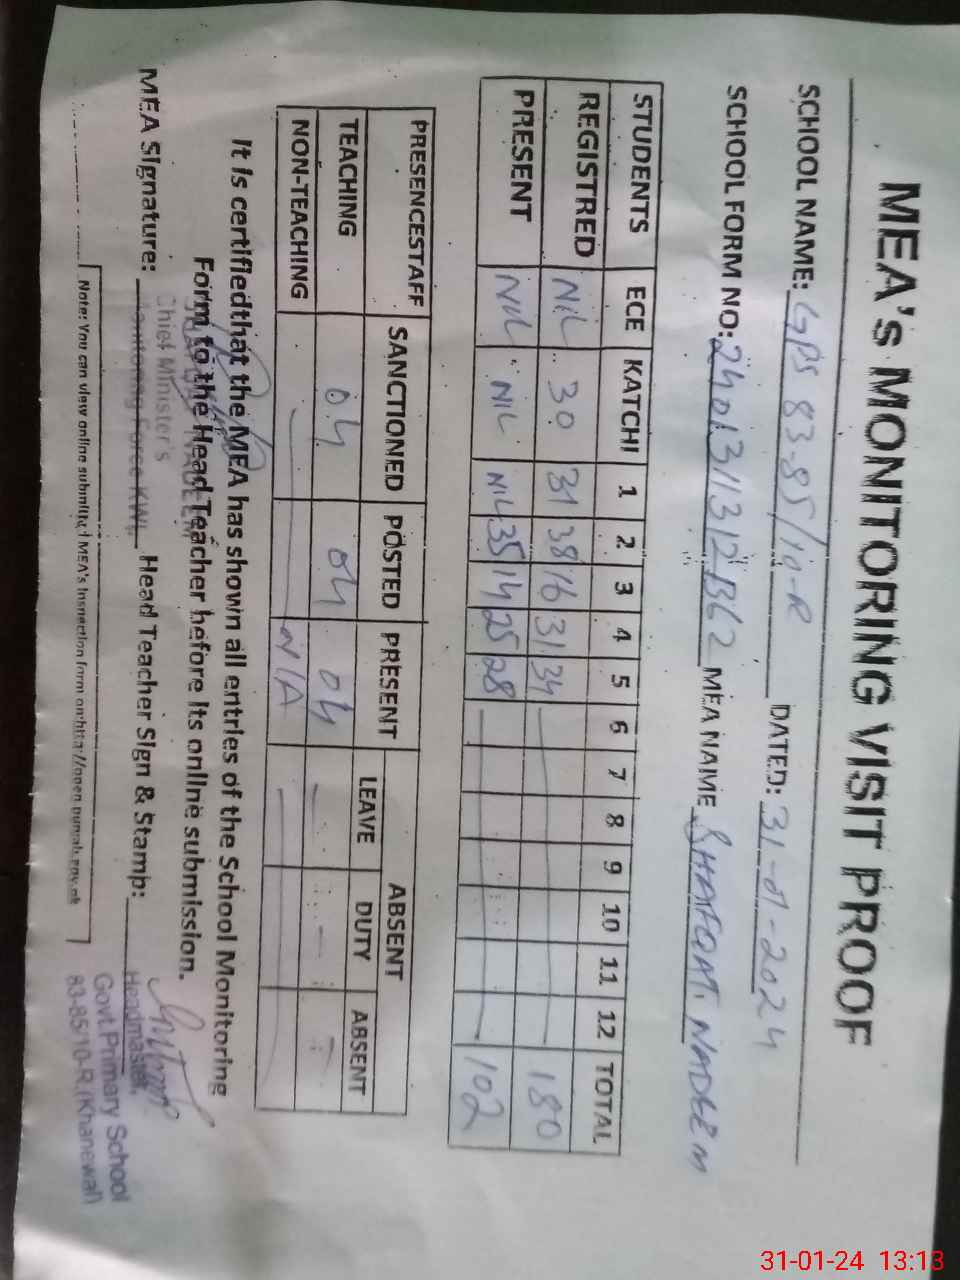 MEA'S MONITORING VISIT PROOF
SCHOOL NAME: GPS 83-85/10-R DATED: 31-01-2024
SCHOOL FORM NO: MEA NAME SHAFQAT. NADEEM
STUDENTS ECE KATCHI 1 2 3 4 5 6 7 8 9 10 11 12 TOTAL
REGISTRED NIL 30 31 38 16 31 34 180
PRESENT NIL NIL NIL 35 14 25 28 102
PRESENCESTAFF SANCTIONED POSTED PRESENT ABSENT
LEAVE DUTY ABSENT
TEACHING 04 04 04
NON-TEACHING N/A
It is certifiedthat the MEA has shown all entries of the School Monitoring
Form to the Head Teacher before its online submission.
Chief Minister's
Monitoring Force KWL
MEA Signature: Head Teacher Sign & Stamp:
Headmaster
Govt.Primary School
83-85/10-R (Khanewal)
Note: You can view online submitted MEA's Inspection form on http://open.punjab.gov.pk
31-01-24 13:13